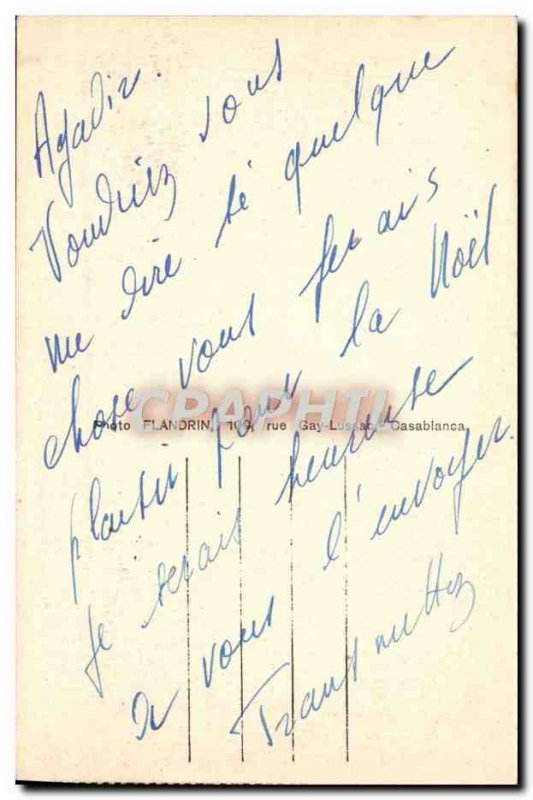 Agadir.
Voudriez vous
me dire si quelque
chose vous ferais
plaisir pour la Noël
je serais heureuse
de vous l'envoyer.
Transmettez
CPAPHTI
Photo FLANDRIN, 109, rue Gay-Lussac, Casablanca.